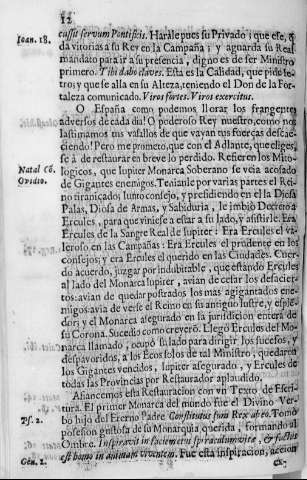 12
Ioan. 18. cussit servum Pontificis. Haràle pues su Privado; que ese, q̃
da vitorias a su Rey en la Campaña; y aguarda su Real
mandato para ir a su presencia, digno es de ser Ministro
primero. Tibi dabo claves. Esta es la Calidad, que pide
tros; y que se alla en su Alteza, teniendo el Don de la For-
taleza comunicado. Viros fortes. Viros exercitus.
O España como podemos llorar los frangentes
adversos de cada dia! O poderoso Rey nuestro, como nos
lastimamos tus vasallos de que vayan tus fuerças descae-
ciendo! Pero me prometo, que con el Adlante, que eliges,
se à de restaurar en breve lo perdido. Refieren los Mito-
Natal Cõ. logicos, que Iupiter Monarca Soberano se veìa acosado
Ovidio. de Gigantes enemigos. Tenianle por varias partes el Rei-
no tiraniçado: Iunto consejo, y presidiendo en èl la Diosa
Palas, Diosa de Armas, y Sabiduria, le imbiò Decreto à
Ercules, para que viniese a estar a su lado, y asistirle. Era
Ercules de la Sangre Real de Iupiter: Era Ercules el va-
leroso en las Campañas: Era Ercules el prudente en los
consejos; y era Ercules el querido en las Ciudades. Cuer-
do acuerdo, juzgar por indubitable, que estando Ercules
al lado del Monarca Iupiter, avian de ceder los desacier-
tos: avian de quedar postrados los mas agigantados ene-
migos: avia de verse el Reino en su antiguo lustre, y esplé-
dor; y el Monarca asegurado en su juridicion entera de
su Corona. Sucediò como creyerõ. Llegò Ercules del Mo-
narca llamado, ocupò su lado para dirigir los sucesos, y
despavoridos, a los Ecos solos de tal Ministro, quedaron
los Gigantes vencidos, Iupiter asegurado, y Ercules de
todas las Provincias por Restaurador aplaudido.
Afiancemos esta Restauracion con un Texto de Escri-
tura. El primer Monarca del mundo fue el Divino Ver-
Ps. 2. bo hijo del Eterno Padre Constitutus sum Rex ab eo. Tomò
posesion gustosa de su Monarquia querida, formando al
Ombre. Inspiravit in faciem eius spiraculum vitæ, & factus
Gen. 2. est homo in animam viventem. Fue esta inspiracion, accion